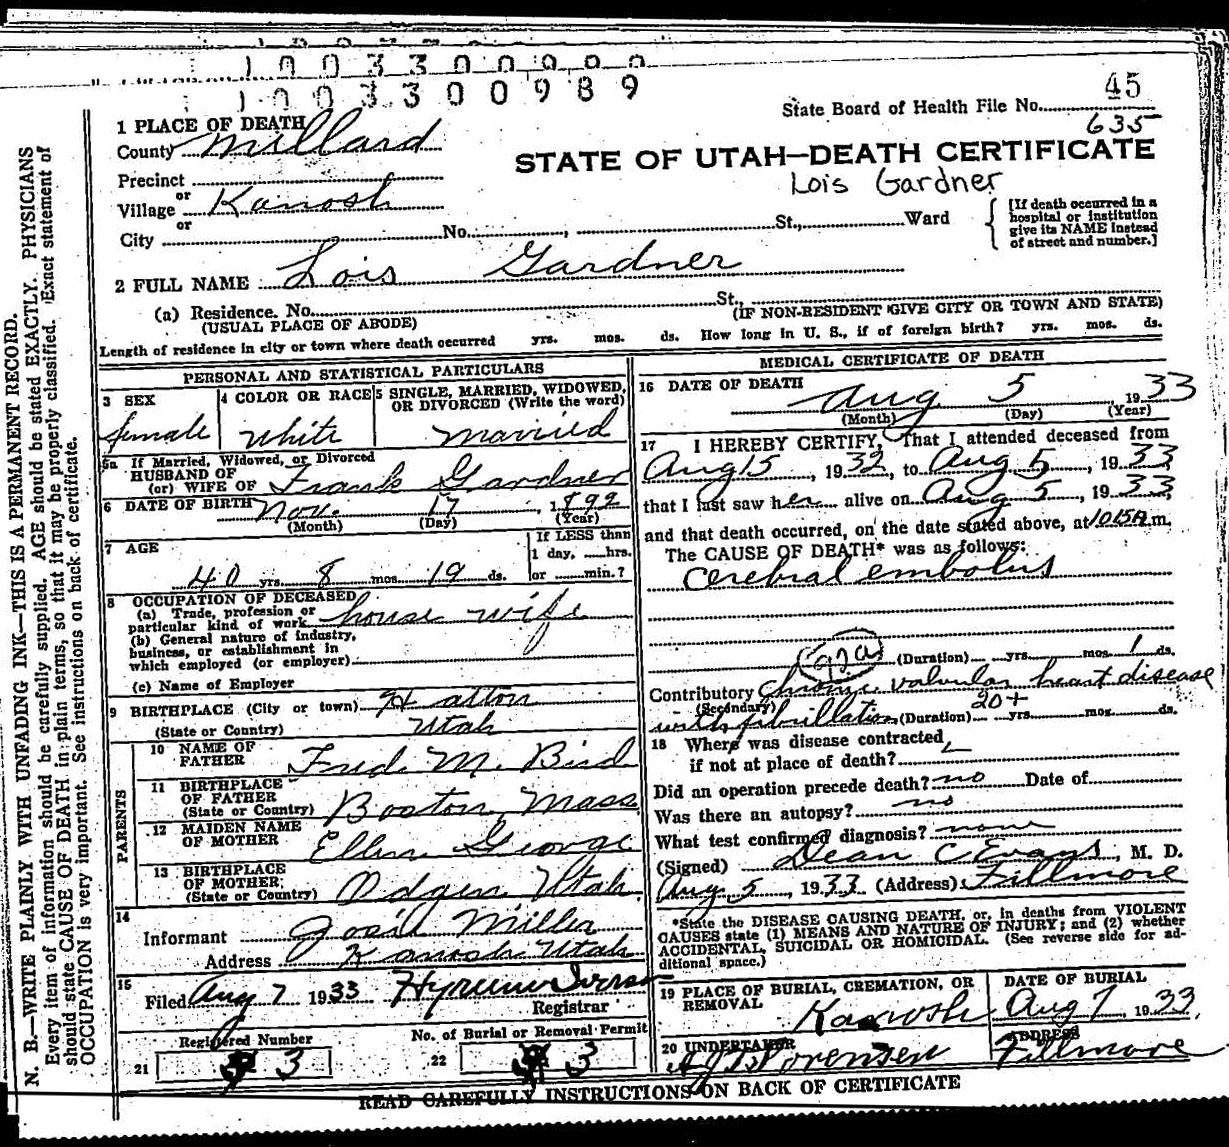 1003300989
45
State Board of Health File No.
635
1 PLACE OF DEATH
County Millard
STATE OF UTAH—DEATH CERTIFICATE
Lois Gardner
Precinct
or
Village Kanosh
or
City No. , St., Ward
[If death occurred in a hospital or institution give its NAME instead of street and number.]
2 FULL NAME Lois Gardner
(a) Residence. No. St.,
(USUAL PLACE OF ABODE) (IF NON-RESIDENT GIVE CITY OR TOWN AND STATE)
Length of residence in city or town where death occurred yrs. mos. ds. How long in U. S., if of foreign birth? yrs. mos. ds.
PERSONAL AND STATISTICAL PARTICULARS
3 SEX
female
4 COLOR OR RACE
White
5 SINGLE, MARRIED, WIDOWED, OR DIVORCED (Write the word)
Married
5a If Married, Widowed, or Divorced
HUSBAND OF
(or) WIFE OF Frank Gardner
6 DATE OF BIRTH Nov. 17, 1892
(Month) (Day) (Year)
7 AGE
If LESS than
1 day, hrs.
40 yrs. 8 mos. 19 ds. or min.?
8 OCCUPATION OF DECEASED
(a) Trade, profession or
particular kind of work house wife
(b) General nature of industry,
business, or establishment in
which employed (or employer)
(c) Name of Employer
9 BIRTHPLACE (City or town) Hatton
(State or Country) Utah
PARENTS
10 NAME OF
FATHER Fred. M. Bird
11 BIRTHPLACE
OF FATHER
(State or Country) Boston, Mass
12 MAIDEN NAME
OF MOTHER Ellen George
13 BIRTHPLACE
OF MOTHER
(State or Country) Odgen Utah
14
Informant Miller
Address Kanosh Utah
15
Filed Aug 7 1933
Registrar
Registered Number
21 3
No. of Burial or Removal Permit
22 3
MEDICAL CERTIFICATE OF DEATH
16 DATE OF DEATH
Aug 5, 1933
(Month) (Day) (Year)
17 I HEREBY CERTIFY, That I attended deceased from
Aug 15, 1932, to Aug 5, 1933
that I last saw her alive on Aug 5, 1933
and that death occurred, on the date stated above, at 1015A.m.
The CAUSE OF DEATH* was as follows:
Cerebral embolus
92a
(Duration) yrs. mos. 1 ds.
Contributory Chronic valvular heart disease
(Secondary)
with fibrillation (Duration) 20+ yrs. mos. ds.
18 Where was disease contracted,
if not at place of death?
Did an operation precede death? no Date of
Was there an autopsy? no
What test confirmed diagnosis? none
(Signed) Dean C Evans, M. D.
Aug 5, 1933 (Address) Fillmore
*State the DISEASE CAUSING DEATH, or, in deaths from VIOLENT
CAUSES state (1) MEANS AND NATURE OF INJURY; and (2) whether
ACCIDENTAL, SUICIDAL OR HOMICIDAL. (See reverse side for ad-
ditional space.)
19 PLACE OF BURIAL, CREMATION, OR
REMOVAL
Kanosh
DATE OF BURIAL
Aug 7, 1933
20 UNDERTAKER
Sorensen
ADDRESS
Fillmore
READ CAREFULLY INSTRUCTIONS ON BACK OF CERTIFICATE
N. B.—WRITE PLAINLY WITH UNFADING INK—THIS IS A PERMANENT RECORD.
Every item of information should be carefully supplied. AGE should be stated EXACTLY. PHYSICIANS
should state CAUSE OF DEATH in plain terms, so that it may be properly classified. Exact statement of
OCCUPATION is very important. See instructions on back of certificate.